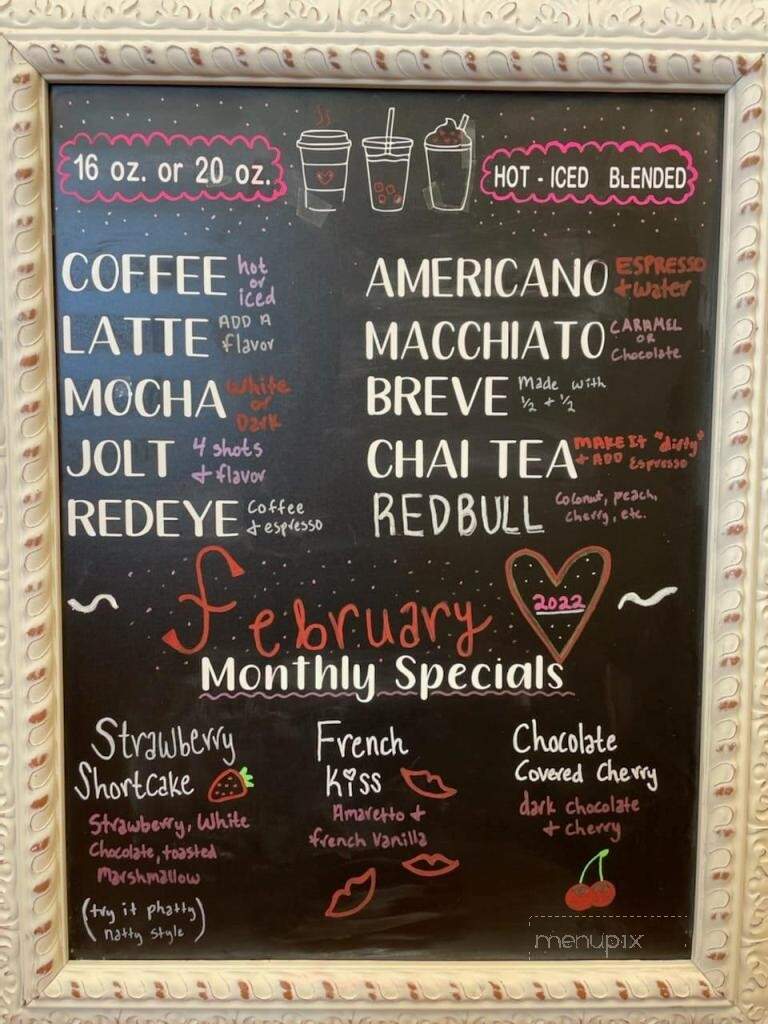 16 oz. or 20 oz.
HOT - ICED BLENDED
COFFEE hot or iced
LATTE ADD A flavor
MOCHA White or Dark
JOLT 4 shots + flavor
REDEYE Coffee + espresso
AMERICANO ESPRESSO + water
MACCHIATO CARAMEL OR Chocolate
BREVE Made with ½ + ½
CHAI TEA MAKE IT "dirty" + ADD Espresso
REDBULL Coconut, peach, cherry, etc.
February
2022
Monthly Specials
Strawberry
Shortcake
Strawberry, White
Chocolate, toasted
Marshmallow
(try it phatty
natty style)
French
Kiss
Amaretto +
french Vanilla
Chocolate
Covered Cherry
dark chocolate
+ cherry
menupix